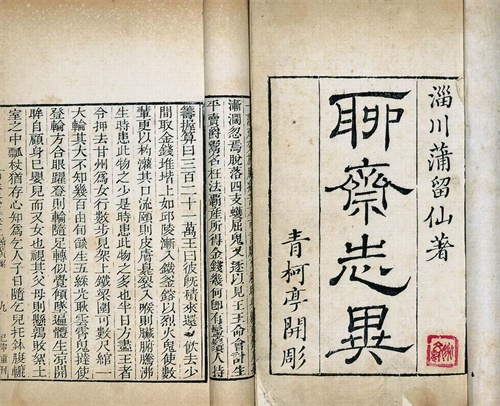 淄川蒲留仙著
聊齋志異
青柯亭開彫
漸濶忽焉脫落四支蠖屈鬼又逐以見王王命會計生
平賣爵鬻名枉法霸產所得金錢幾何即有鬡鬚人持
籌握算曰三百二十一萬王曰彼既積來還令飲去少
間取金錢堆堦上如邱陵漸入鐵釜鎔以烈火鬼使數
輩更以杓灌其口流頤則皮膚臭裂入喉則臟腑騰沸
生時患此物之少是時患此物之多也半日方盡王者
令押去甘州爲女行數步見架上鐵梁圍可數尺綰一
火輪其大不知幾百由旬燄生五綵光耿雲霄鬼撻使
登輪方合眼躍登則輪隨足轉似覺傾墜遍體生涼開
眸自顧身已嬰兒而又女也視其父母則懸鶉敗絮土
室之中瓢杖猶存心知爲乞人子日隨乞兒托鉢腹轆